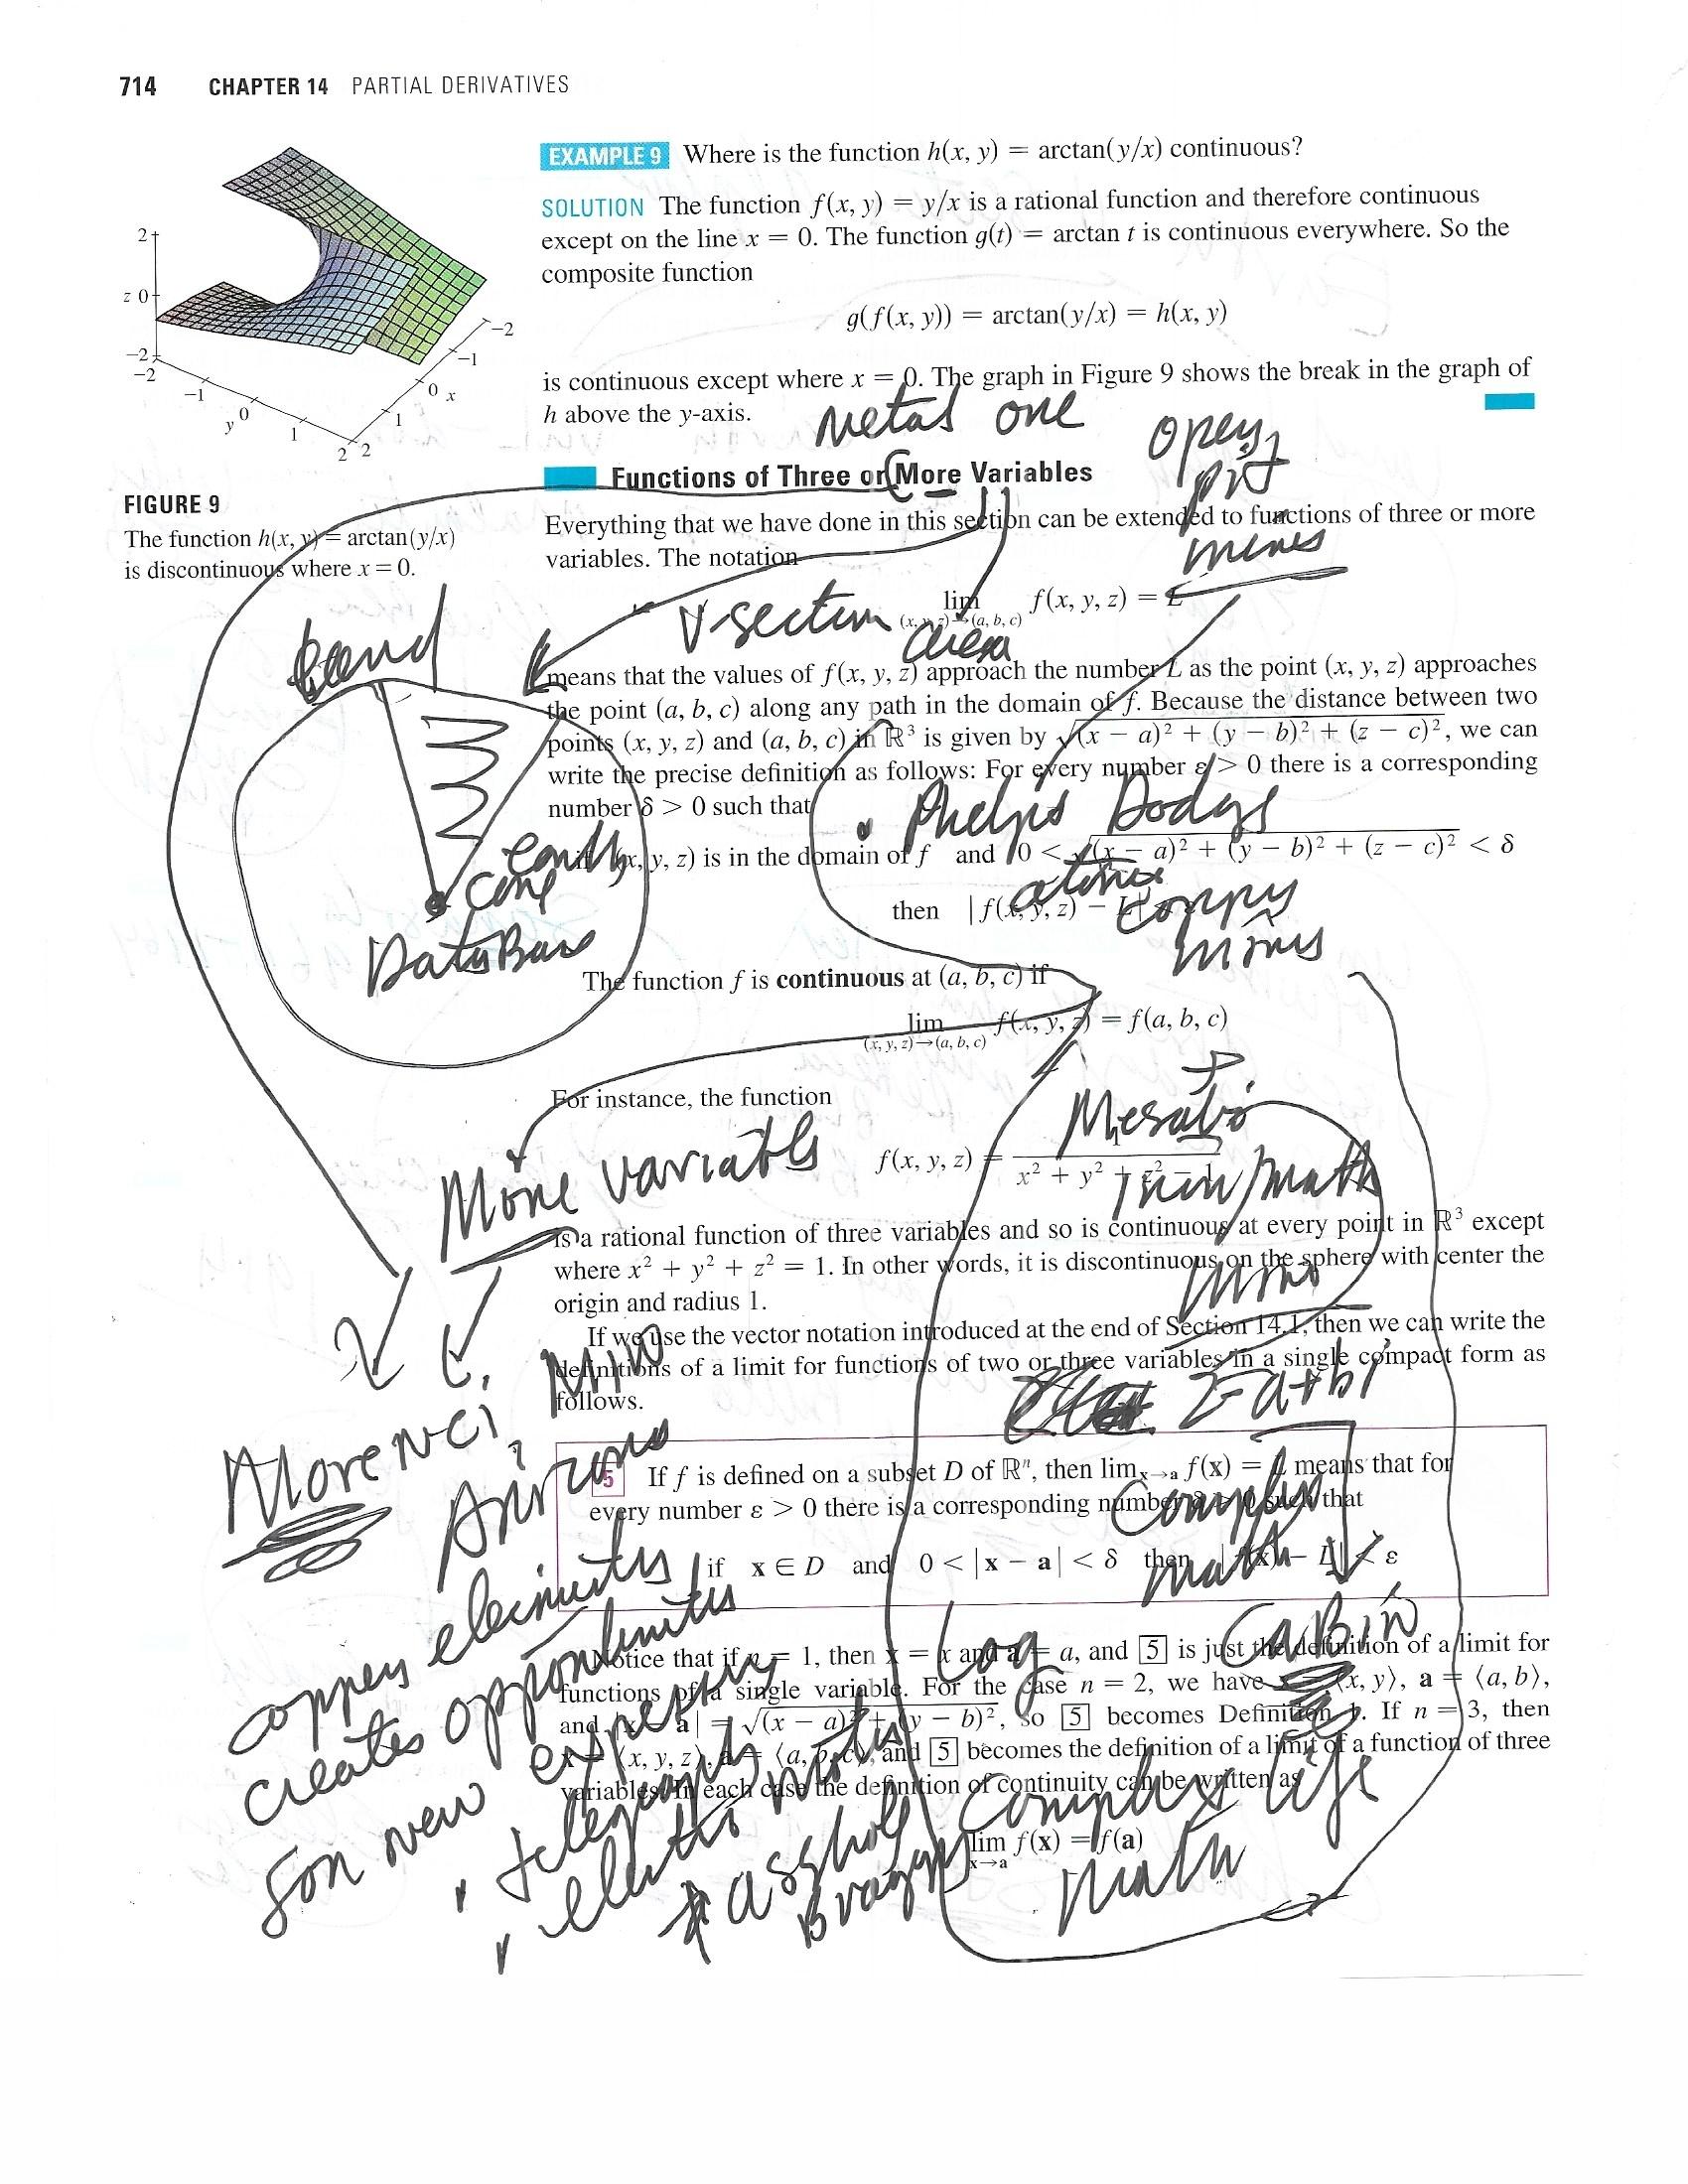 714 CHAPTER 14 PARTIAL DERIVATIVES
EXAMPLE 9 Where is the function h(x, y) = arctan(y/x) continuous?
SOLUTION The function f(x, y) = y/x is a rational function and therefore continuous
except on the line x = 0. The function g(t) = arctan t is continuous everywhere. So the
composite function
g(f(x, y)) = arctan(y/x) = h(x, y)
is continuous except where x = 0. The graph in Figure 9 shows the break in the graph of
h above the y-axis.
2
z 0
−2
−2
−1
y 0
1
2 2
1
0 x
−1
−2
FIGURE 9
The function h(x, y) = arctan(y/x)
is discontinuous where x = 0.
Metal one
open
pit
mines
Functions of Three or More Variables
Everything that we have done in this section can be extended to functions of three or more
variables. The notation
lim f(x, y, z) = L
(x, y, z)→(a, b, c)
V-section
area
means that the values of f(x, y, z) approach the number L as the point (x, y, z) approaches
the point (a, b, c) along any path in the domain of f. Because the distance between two
points (x, y, z) and (a, b, c) in ℝ³ is given by √(x − a)² + (y − b)² + (z − c)², we can
write the precise definition as follows: For every number ε > 0 there is a corresponding
number δ > 0 such that
Phelps Dodge
if (x, y, z) is in the domain of f and 0 < √(x − a)² + (y − b)² + (z − c)² < δ
then | f(x, y, z) − L
earth
core
DataBase
mines
The function f is continuous at (a, b, c) if
lim f(x, y, z) = f(a, b, c)
(x, y, z)→(a, b, c)
For instance, the function
Mesabi
More variables
f(x, y, z) = x² + y² + z² − 1
math
is a rational function of three variables and so is continuous at every point in ℝ³ except
where x² + y² + z² = 1. In other words, it is discontinuous on the sphere with center the
origin and radius 1.
If we use the vector notation introduced at the end of Section 14.1, then we can write the
definitions of a limit for functions of two or three variables in a single compact form as
follows.
z = a+bi
Morenci,
5 If f is defined on a subset D of ℝⁿ, then limₓ→ₐ f(x) = L means that for
every number ε > 0 there is a corresponding number δ > 0 such that
if x ∈ D and 0 < |x − a| < δ then | f(x) − L | < ε
Complex
math
Log
CaBin
Notice that if n = 1, then x = x and a = a, and 5 is just the definition of a limit for
functions of a single variable. For the case n = 2, we have x = ⟨x, y⟩, a = ⟨a, b⟩,
and |x − a| = √(x − a)² + (y − b)², so 5 becomes Definition 1. If n = 3, then
x = ⟨x, y, z⟩, a = ⟨a, b, c⟩, and 5 becomes the definition of a limit of a function of three
variables. In each case the definition of continuity can be written as
lim f(x) = f(a)
x→a
Complex life
Math
creates opportunities
for new
telegraph